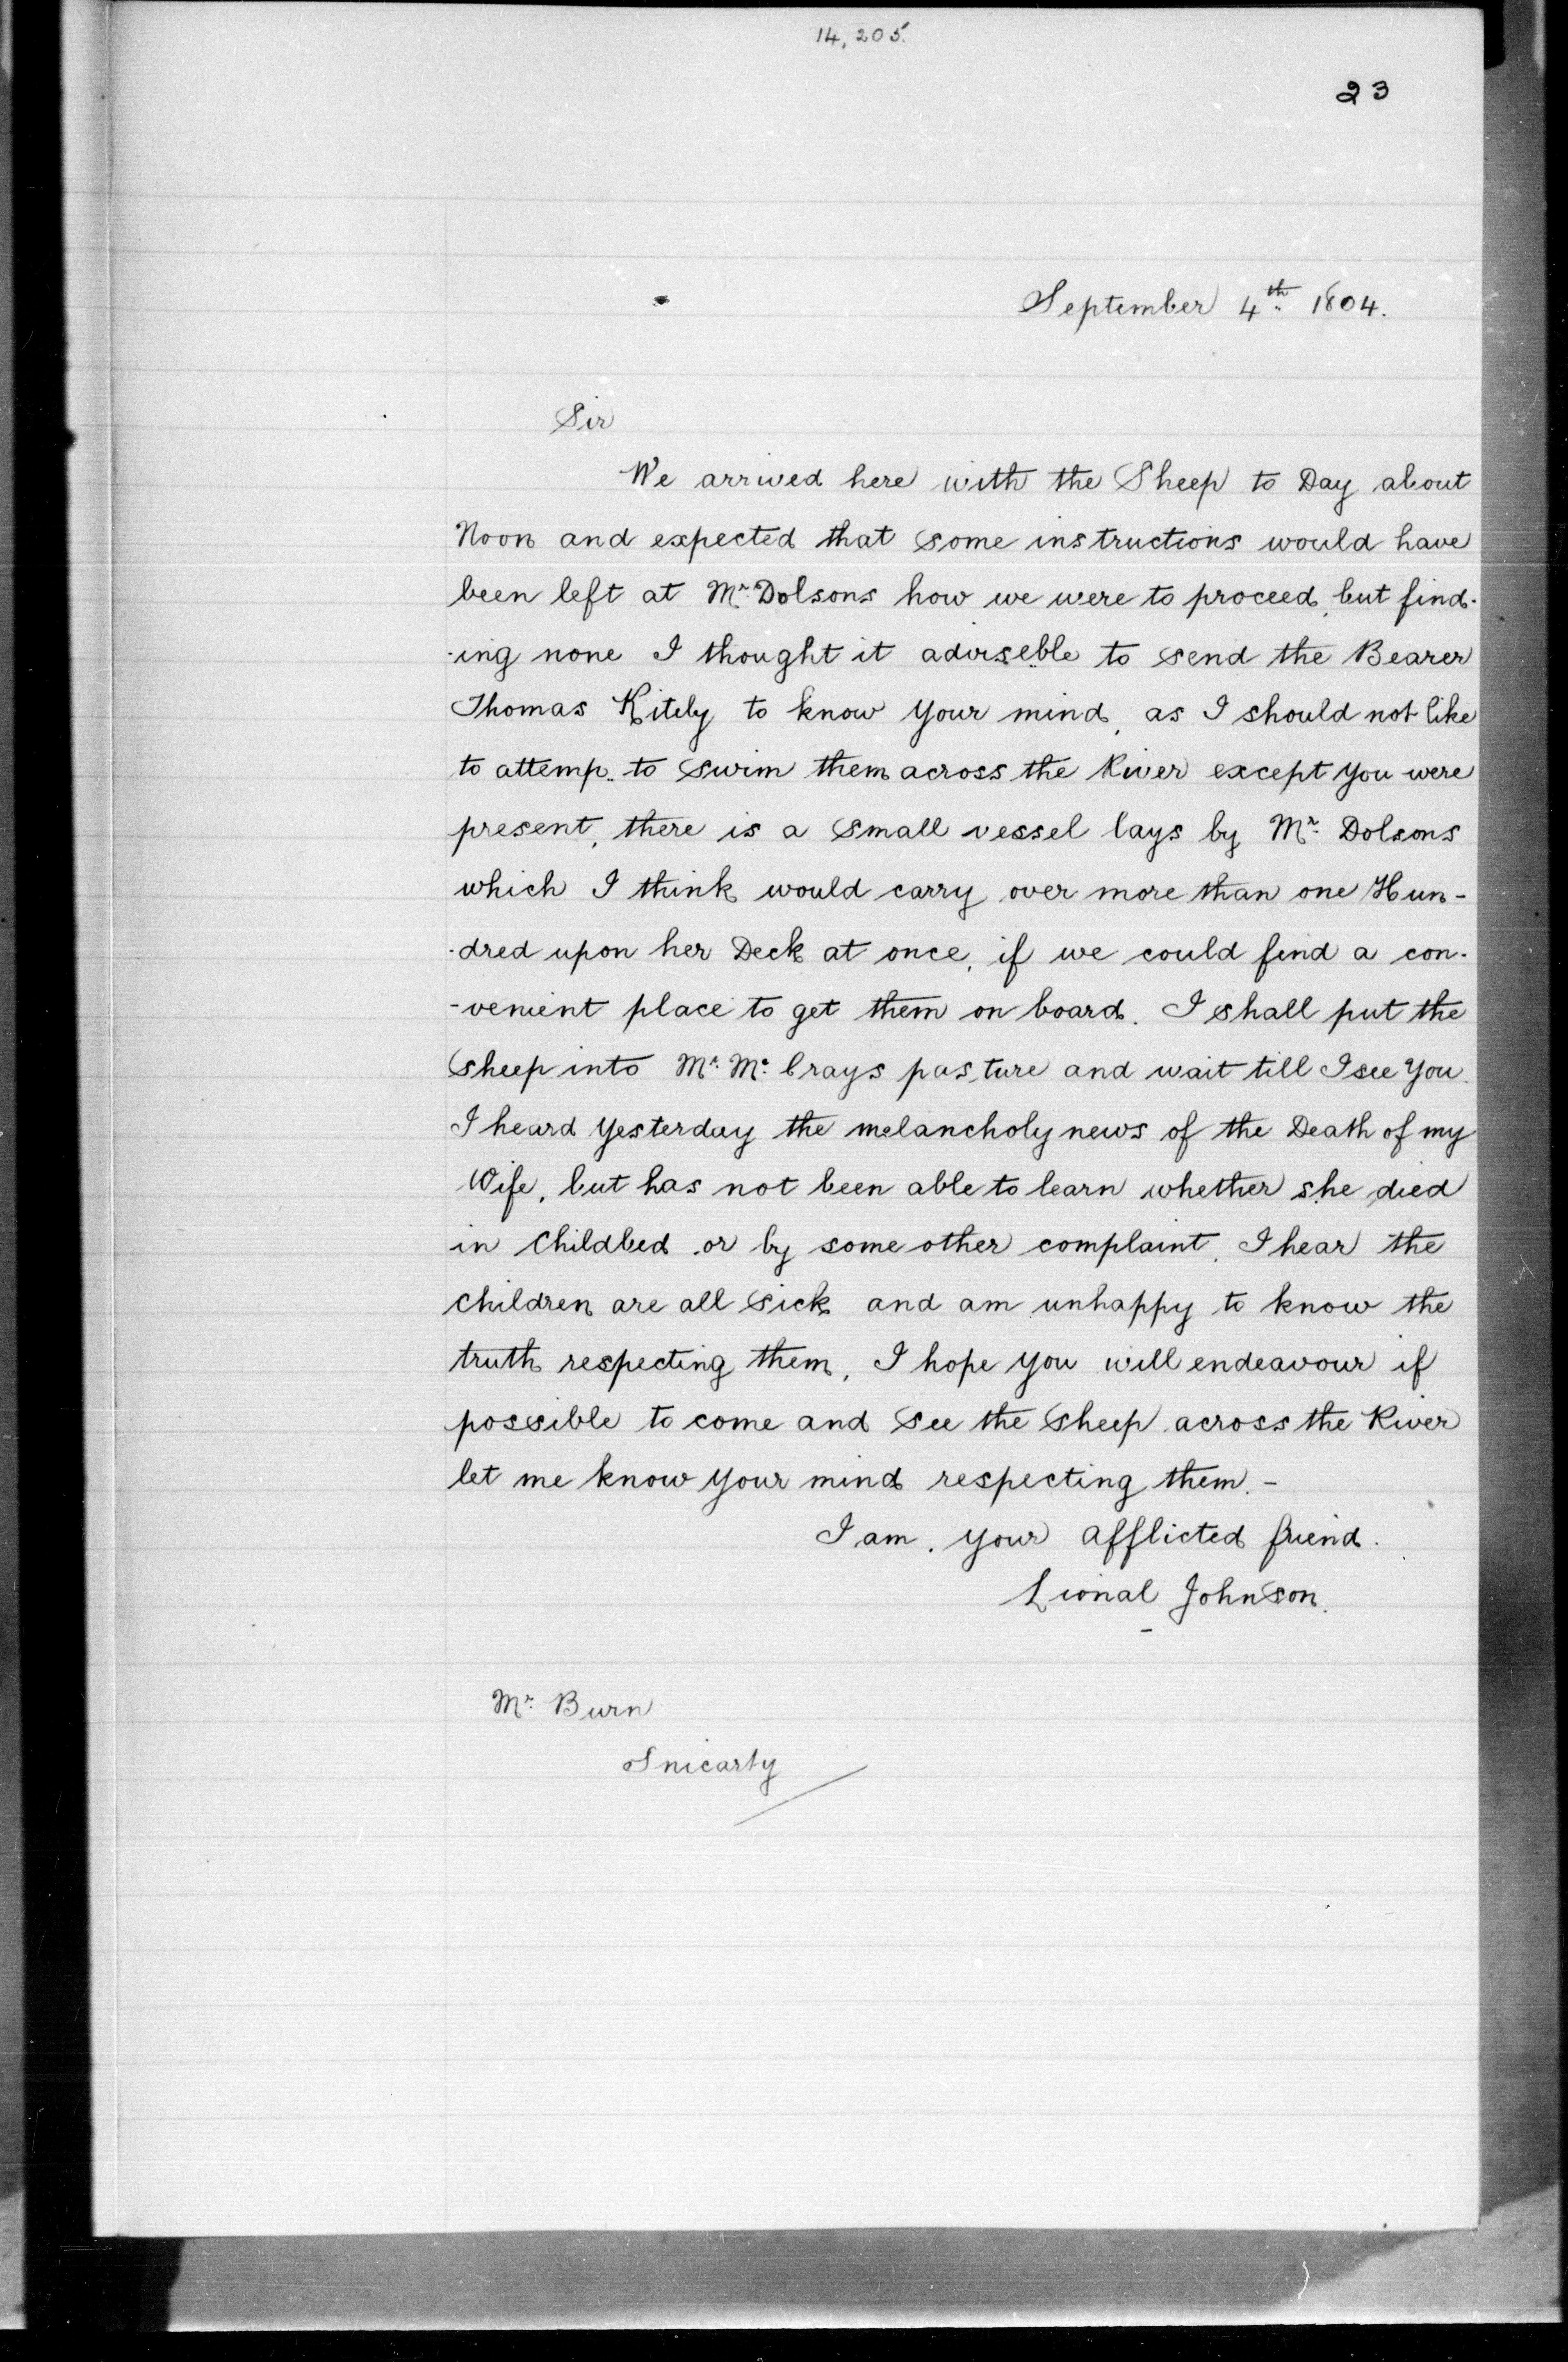 14,205.
23
September 4th 1804.
Sir
We arrived here with the Sheep to Day about
Noon and expected that some instructions would have
been left at Mr. Dolsons how we were to proceed, but find-
-ing none I thought it adviseble to send the Bearer
Thomas Kitely to know your mind, as I should not like
to attemp.. to swim them across the River except you were
present, there is a small vessel lays by Mr. Dolsons
which I think would carry over more than one Hun-
-dred upon her Deck at once, if we could find a con-
-venient place to get them on board. I shall put the
sheep into Mr. Mc. Crays pasture and wait till I see you.
I heard yesterday the melancholy news of the Death of my
Wife, but has not been able to learn whether she died
in Childbed or by some other complaint, I hear the
children are all sick and am unhappy to know the
truth respecting them, I hope you will endeavour if
possible to come and see the sheep across the River
let me know your mind respecting them. -
I am. your afflicted friend.
Lional Johnson.
Mr. Burn
Snicarty